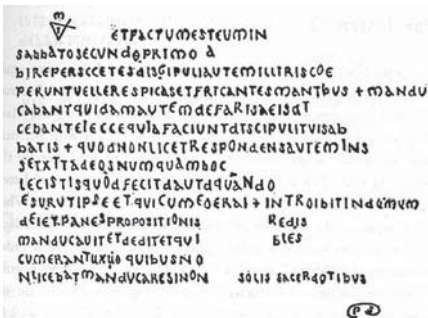 ETFACTUMESTEUMIN
SABBATOSECUNDOPRIMO A
BIREPERSCCETESDISGIPULIAUTEMILLITRISCOE
PERUNTUELLERESPICASETFRICANTESMANTBUS + MANDU
CABANTQUIDAMAUTEMDEFARISAEISDT
CEBANTEIECCEQUIAFACIUNTDTSCIPULITUISAB
BATIS + QUODNONLICETRESPONDENSAUTEMINS
SETXTTADEOSNUMQUAMBOC
LECISTISQUODFECITDAUTDQUANDO
ESURUTIPSEETQUICUMEOERAT + INTROIBITINDOMUM
DEIETPANESPROPOSITIONIS REDIS
MANDUCAUITETDEDITETQUI BLES
CUMERANTUXUO QUIBUSNO
NLICEBATMANDUCARESINON SOLIS SACERDOTIBUS
PD